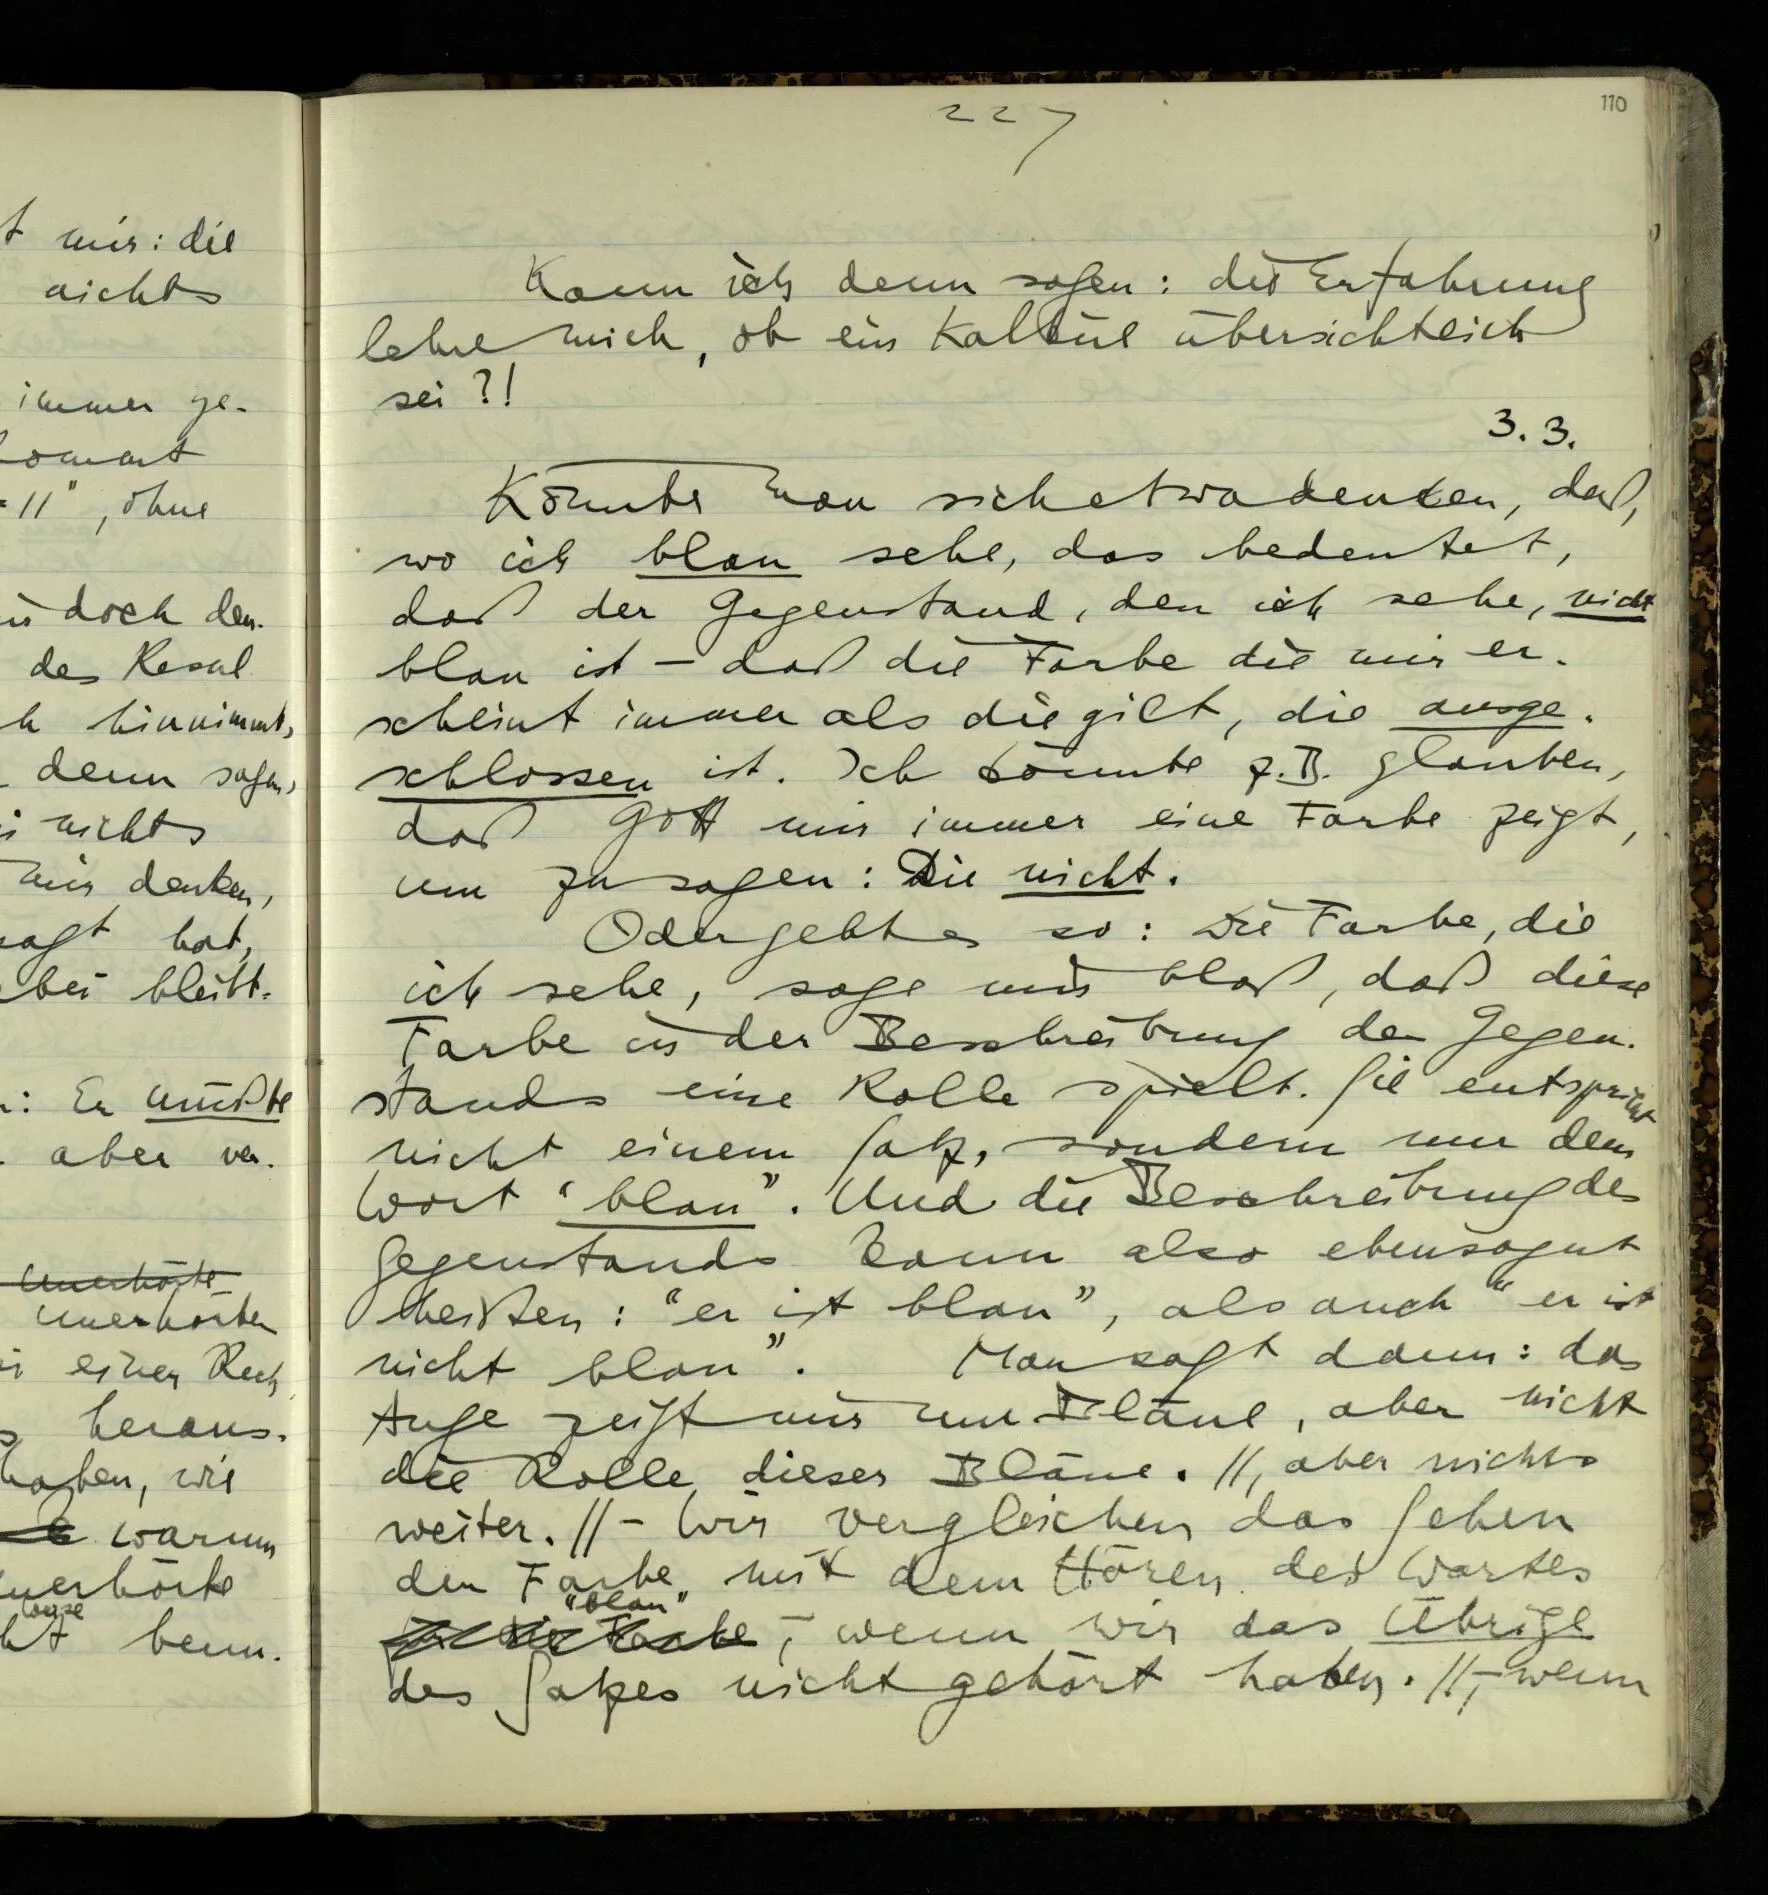 t mir: die
nichts
immer ge-
kommt
11", ohne
doch den-
des Resul
hinnimmt,
denn sagen,
nichts
mir denken,
sagt hat,
bei bleibt.
: Er müßte
aber ver-
Unerhörte
unerhörten
einer Rech
heraus-
haben, wie
warum
unerhörte
weise
benn-
227
110
Kann ich denn sagen: die Erfahrung
lehre mich, ob ein Kalkül übersichtlich
sei?!
3. 3.
Könnte man sich etwa denken, daß,
wo ich blau sehe, das bedeutet,
daß der Gegenstand, den ich sehe, nicht
blau ist – daß die Farbe die mir er-
scheint immer als die gilt, die ausge-
schlossen ist. Ich könnte z.B. glauben,
daß Gott mir immer eine Farbe zeigt,
um zu sagen: Die nicht.
Oder geht es so: Die Farbe, die
ich sehe, sage mir bloß, daß diese
Farbe in der Beschreibung des Gegen-
stands eine Rolle spielt. Sie entspricht
nicht einem Satz, sondern nur dem
Wort "blau". Und die Beschreibung des
Gegenstands kann also ebensogut
heißen: "er ist blau", als auch "er ist
nicht blau". Man sagt dann: das
Auge zeigt mir nur Bläue, aber nicht
die Rolle dieser Bläue. //, aber nichts
weiter. // – Wir vergleichen das Sehen
der Farbe mit dem Hören des Wortes
"blau"
für die Farbe, – wenn wir das Übrige
des Satzes nicht gehört haben. //, – wenn